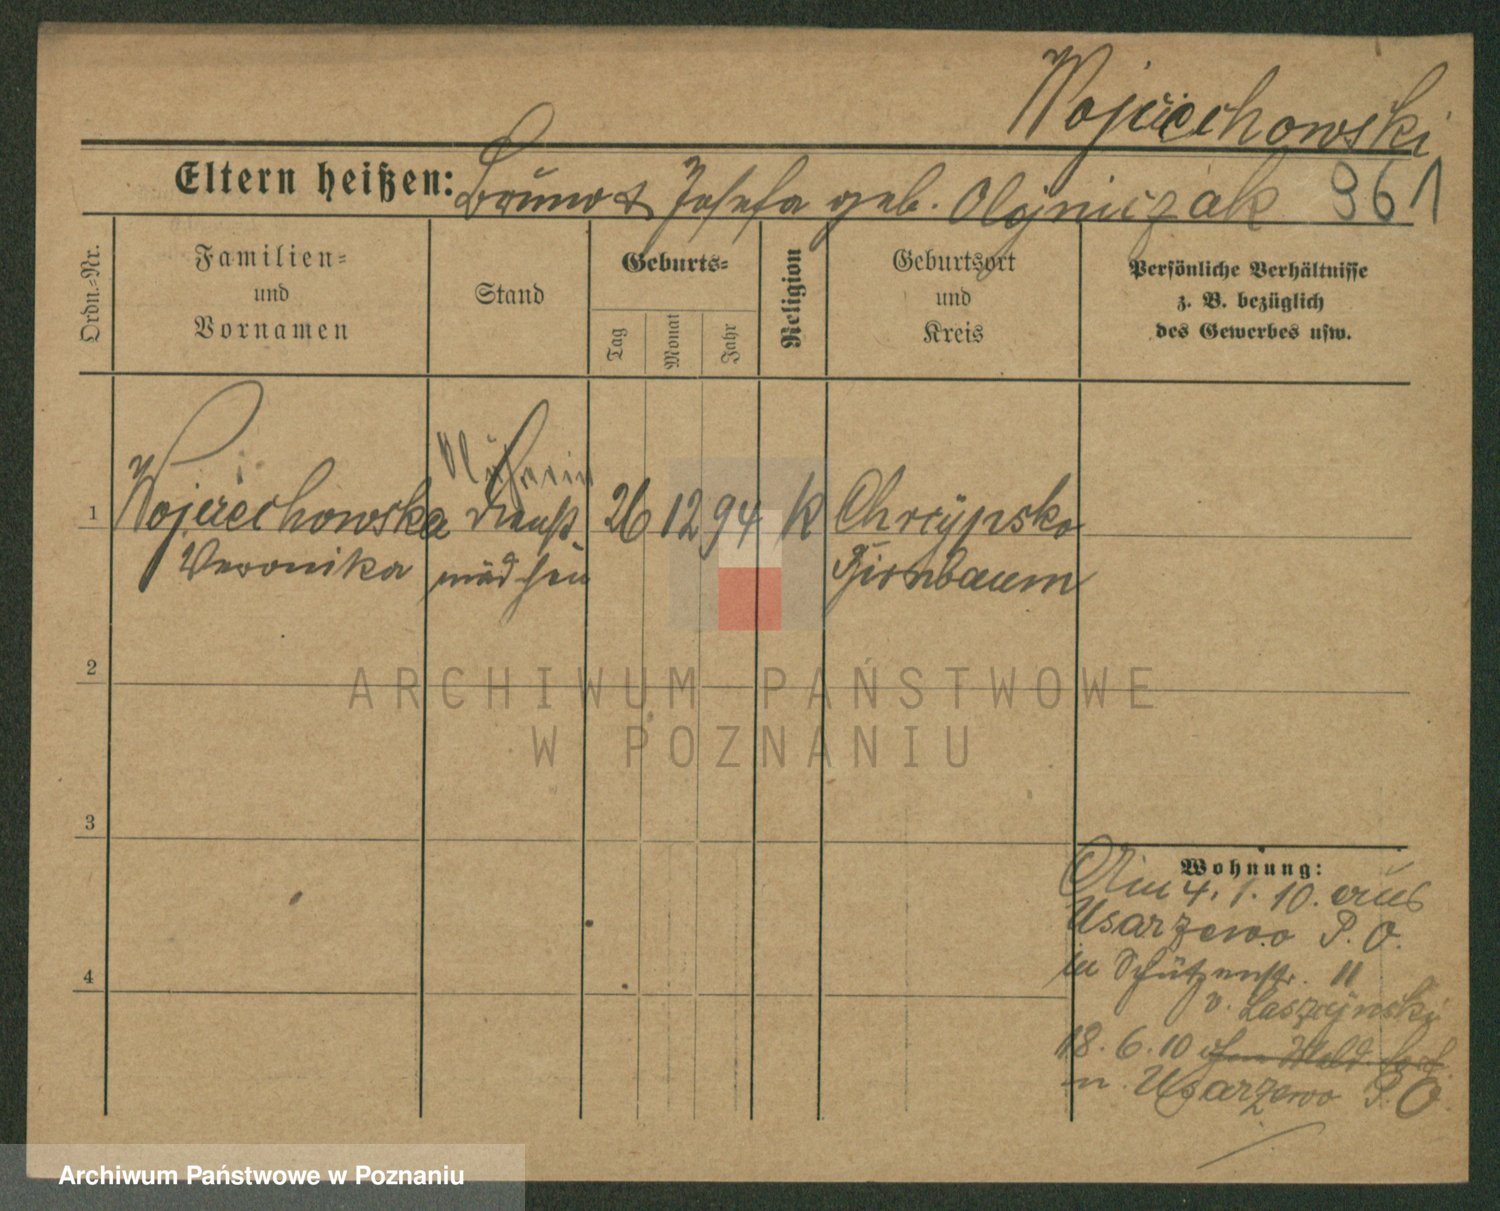 Wojciechowski
Eltern heißen: Bruno & Josefa geb. Olejniczak 961
Ordn.-Nr.
Familien-
und
Vornamen
Stand
Geburts-
Tag
Monat
Jahr
Religion
Geburtsort
und
Kreis
Persönliche Verhältnisse
z. B. bezüglich
des Gewerbes usw.
Näherin
1 Wojciechowska Dienst 26 12 94 K Chrcypsko
Veronika mädchen Birnbaum
2
3
4
Wohnung:
Am 4. 1. 10. aus
Usarzewo P. O.
in Schützenstr. 11
v. Laszczynski
18. 6. 10
n. Usarzewo P. O
ARCHIWUM PAŃSTWOWE
W POZNANIU
Archiwum Państwowe w Poznaniu